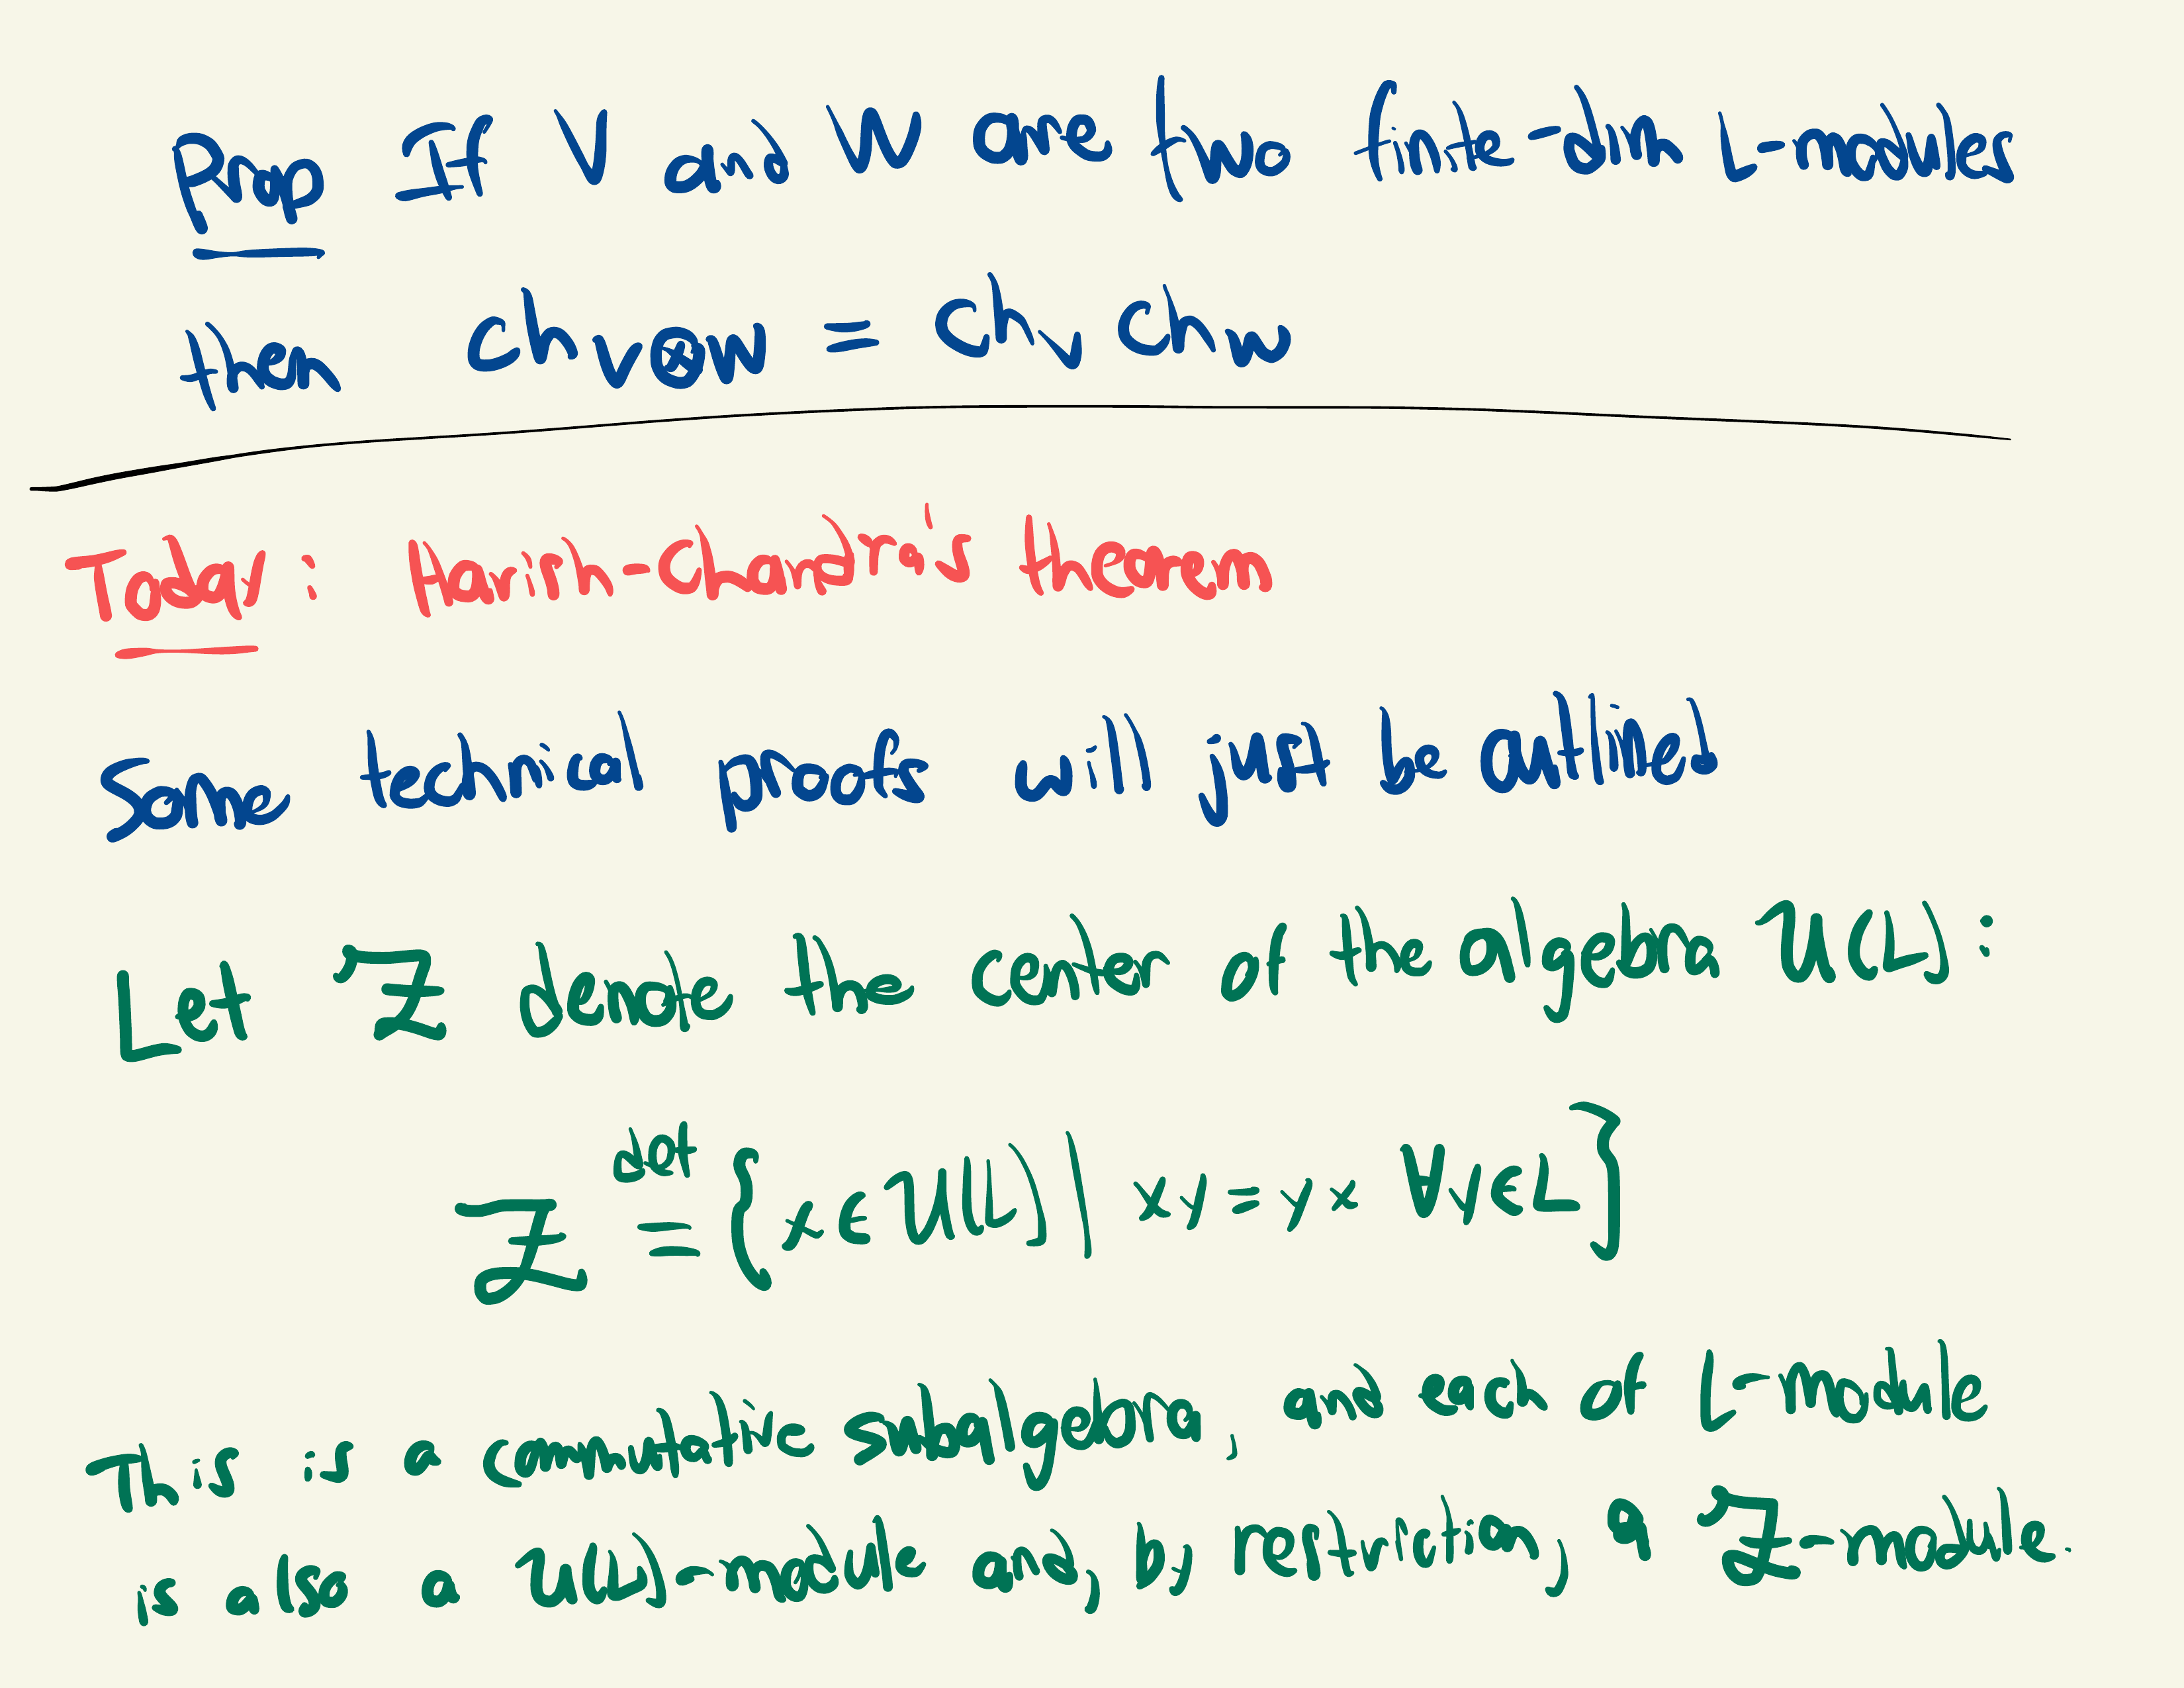 Prop If V and W are two finite-dim L-modules
then ch_{V⊗W} = ch_V ch_W
Today: Harish-Chandra's theorem
Some technical proofs will just be outlined
Let Z denote the center of the algebra U(L):
Z def= {x ∈ U(L) | xy = yx ∀y ∈ L}
This is a commutative subalgebra, and each of L-module
is also a U(L)-module and, by restriction, a Z-module.